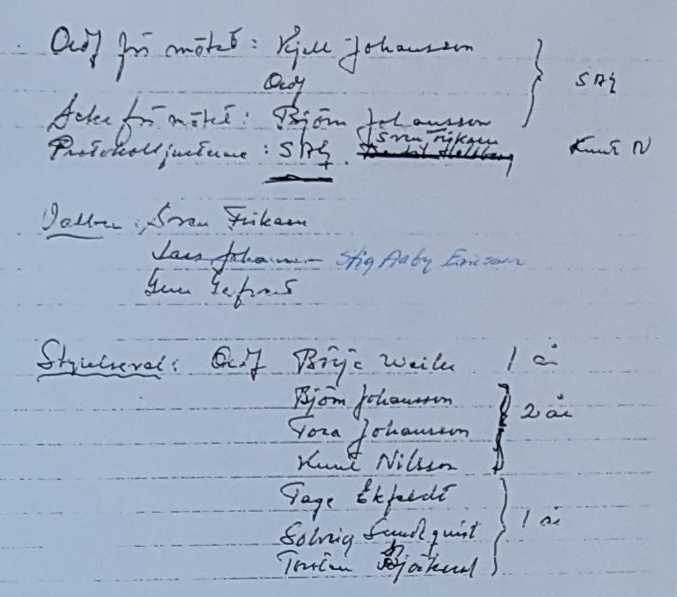 Ordf för mötet: Kjell Johansson
Ordf SAE
för mötet: Björn Johansson
Protokolljusterare: SAE. Sven Eriksson Knut N
Sven Eriksson
Lars Johansson Stig Aaby Ericsson
Styrelseval: Ordf Börje Weiler 1 år
Björn Johansson
Tora Johansson 2 år
Knut Nilsson
Tage Ekfeldt
Solveig Sundquist 1 år
Torsten